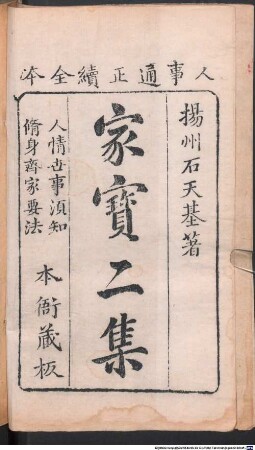 人事通正續全本
揚州石天基著
家寶二集
人情世事須知
脩身齊家要法
本衙藏板